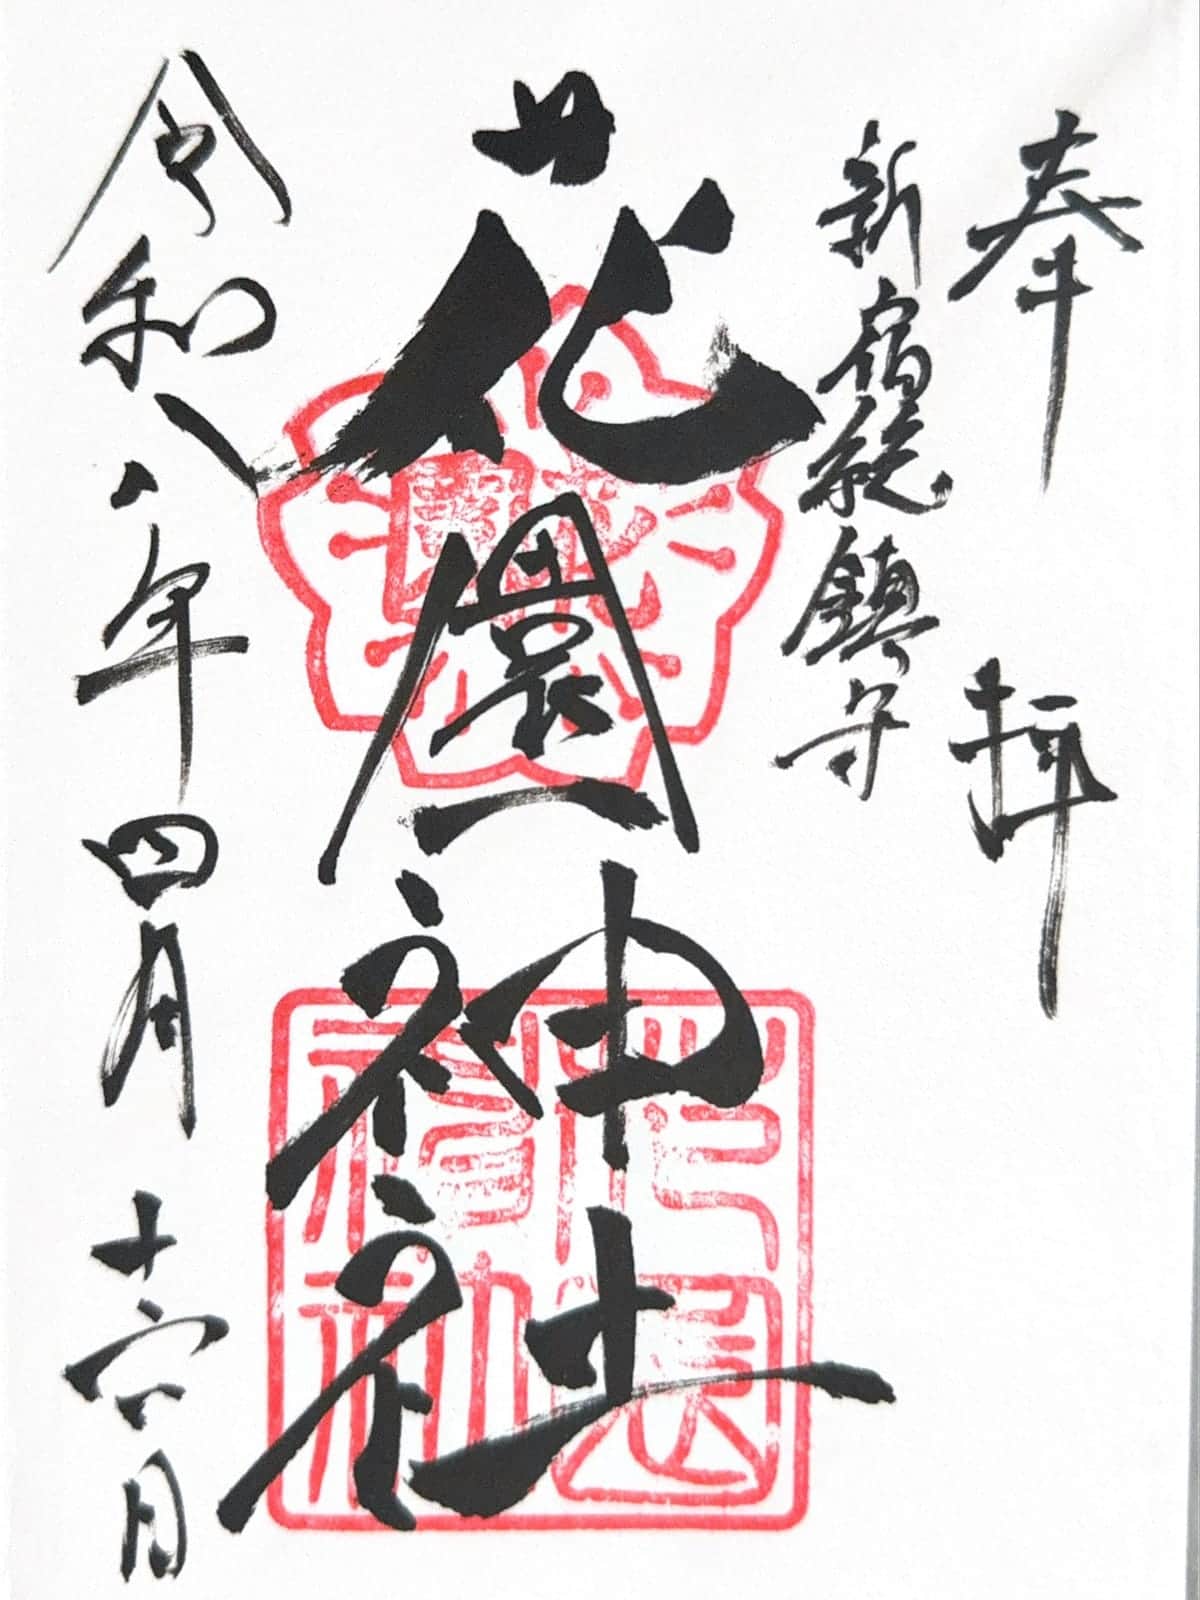 奉拝
新宿総鎮守
花園神社
令和八年四月十六日